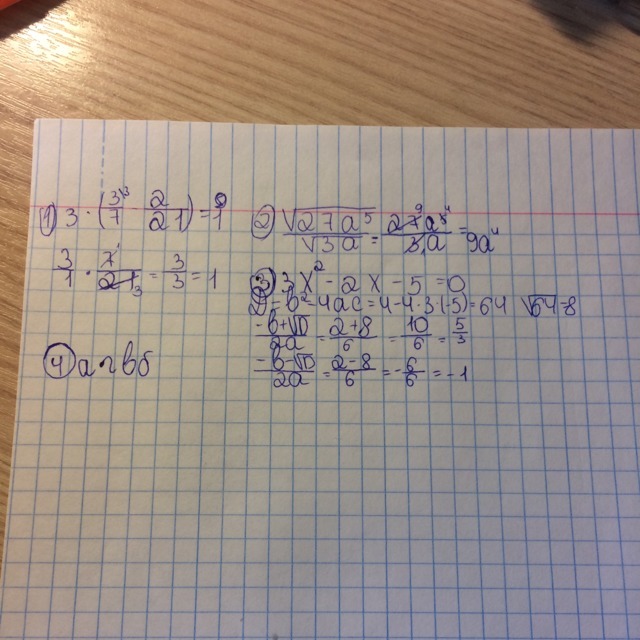 1) 3 · (3/7 - 2/21) = 1
3/1 · 7/21 = 3/3 = 1
2) √27a⁵/√3a = 27a⁵/3a = 9a⁴
3) 3x² - 2x - 5 = 0
D = b² - 4ac = 4 - 4·3·(-5) = 64 √64=8
-b+√D/2a = 2+8/6 = 10/6 = 5/3
-b-√D/2a = 2-8/6 = -6/6 = -1
4)